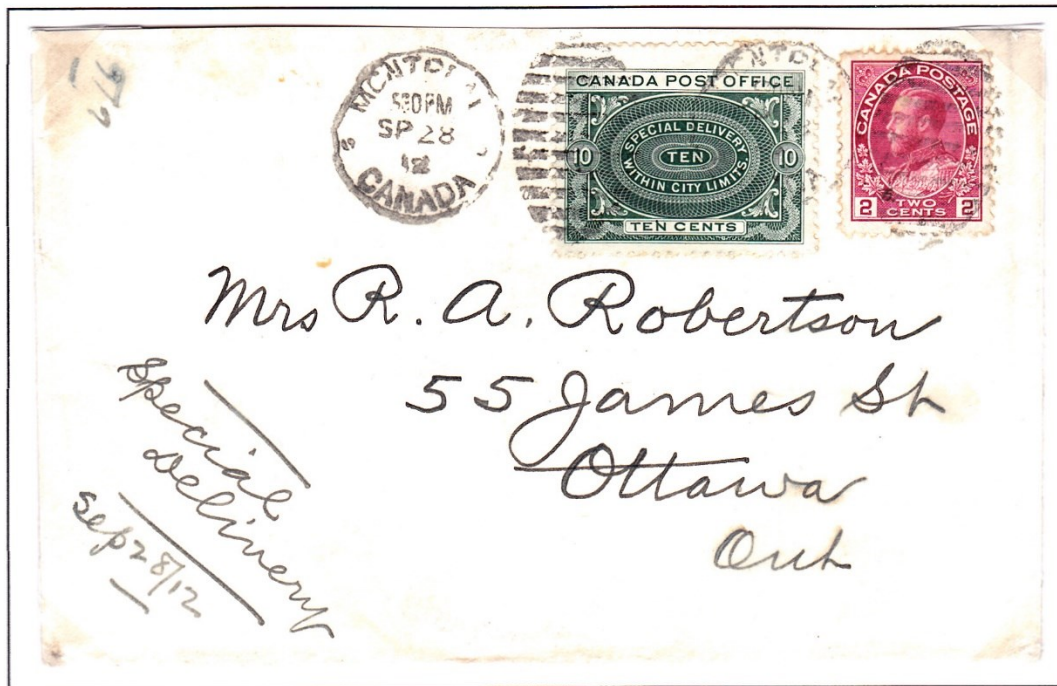 MONTREAL
5 30 PM
SP 28
12
CANADA
CANADA POST OFFICE
SPECIAL DELIVERY
10 TEN 10
WITHIN CITY LIMITS.
TEN CENTS
CANADA POSTAGE
2 TWO CENTS 2
Mrs R. A. Robertson
55 James St
Ottawa
Ont
Special
Delivery
Sep 28/12